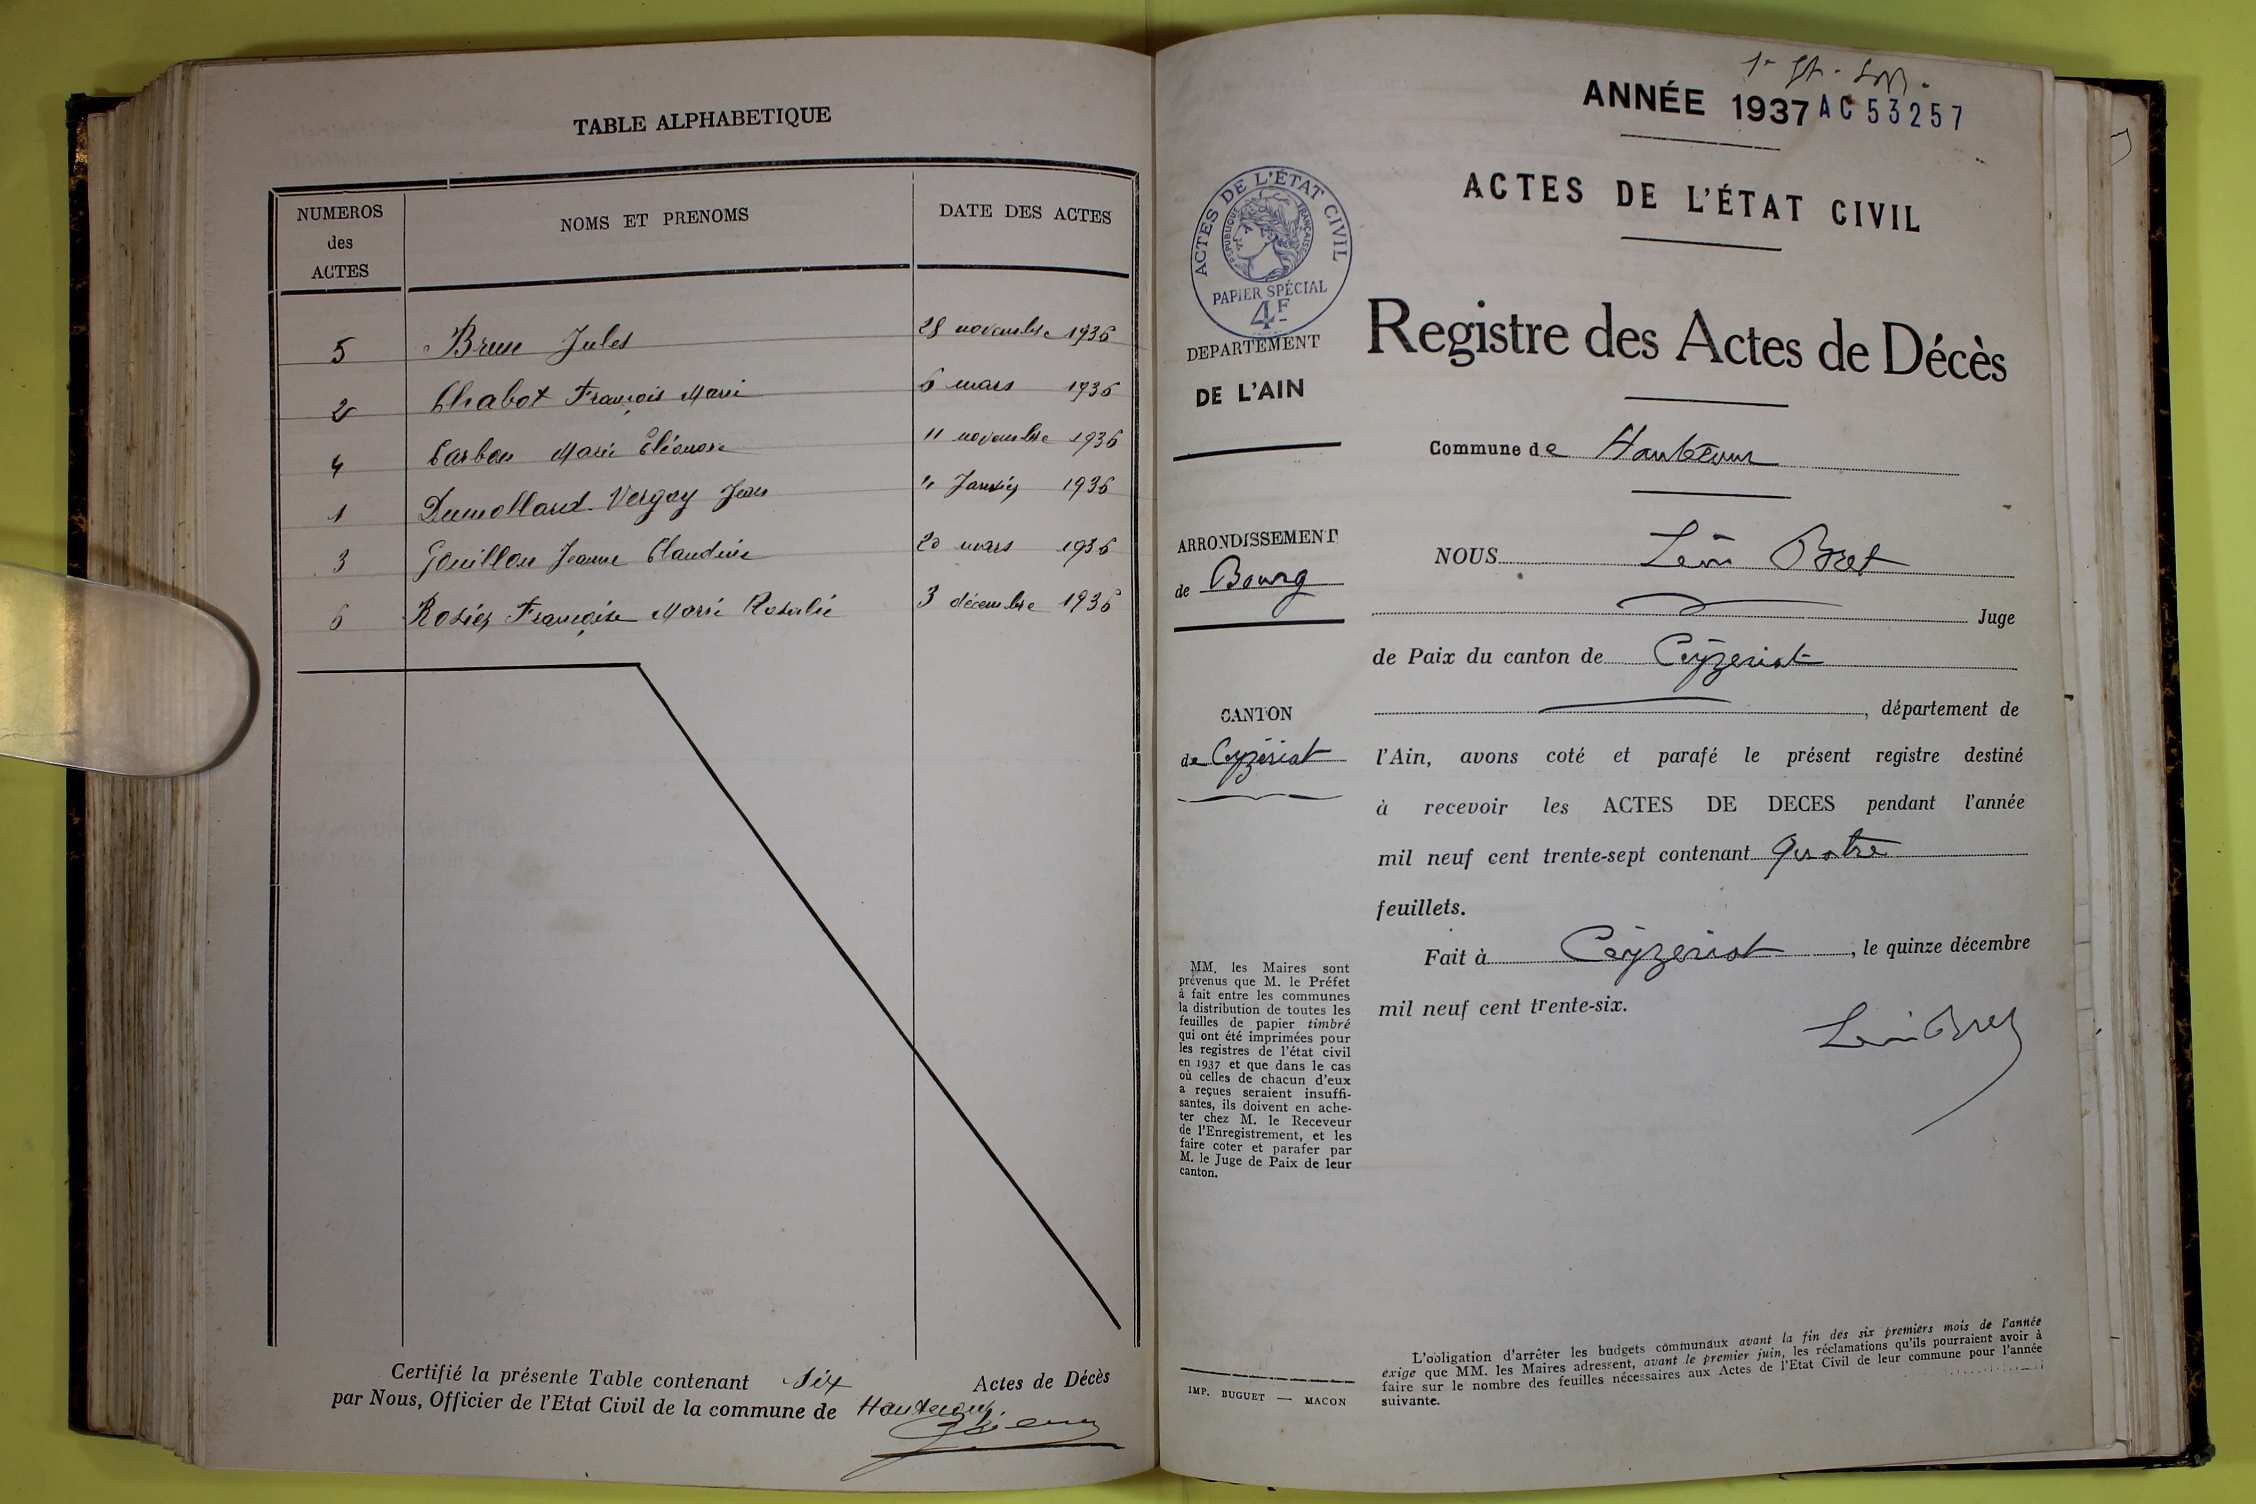 TABLE ALPHABETIQUE
NUMEROS
des
ACTES
NOMS ET PRENOMS
DATE DES ACTES
5 Brun Jules 28 novembre 1936
2 Chabot François Marie 6 mars 1936
4 Carbon Marie Eléonore 11 novembre 1936
1 Dumolland Vergoy Jean 11 Janvier 1936
3 Gouillon Jeanne Claudine 20 mars 1936
6 Rosier Françoise Marie Rosalie 3 décembre 1936
Certifié la présente Table contenant six Actes de Décès
par Nous, Officier de l'Etat Civil de la commune de Hautecour.
ANNÉE 1937 AC 53257
ACTES DE L'ÉTAT CIVIL
ACTES DE L'ÉTAT CIVIL
RÉPUBLIQUE FRANÇAISE
PAPIER SPÉCIAL
4F
DEPARTEMENT
DE L'AIN
Registre des Actes de Décès
Commune de Hautecour
ARRONDISSEMENT
de Bourg
NOUS Léon Bret
Juge
de Paix du canton de Ceyzeriat
, département de
CANTON
de Ceyzériat
l'Ain, avons coté et parafé le présent registre destiné
à recevoir les ACTES DE DECES pendant l'année
mil neuf cent trente-sept contenant quatre
feuillets.
Fait à Ceyzeriat, le quinze décembre
mil neuf cent trente-six.
Léon Bret
MM. les Maires sont
prévenus que M. le Préfet
a fait entre les communes
la distribution de toutes les
feuilles de papier timbré
qui ont été imprimées pour
les registres de l'état civil
en 1937 et que dans le cas
où celles de chacun d'eux
a reçues seraient insuffi-
santes, ils doivent en ache-
ter chez M. le Receveur
de l'Enregistrement, et les
faire coter et parafer par
M. le Juge de Paix de leur
canton.
IMP. BUGUET — MACON
L'obligation d'arrêter les budgets communaux avant la fin des six premiers mois de l'année
exige que MM. les Maires adressent, avant le premier juin, les réclamations qu'ils pourraient avoir à
faire sur le nombre des feuilles nécessaires aux Actes de l'Etat Civil de leur commune pour l'année
suivante.